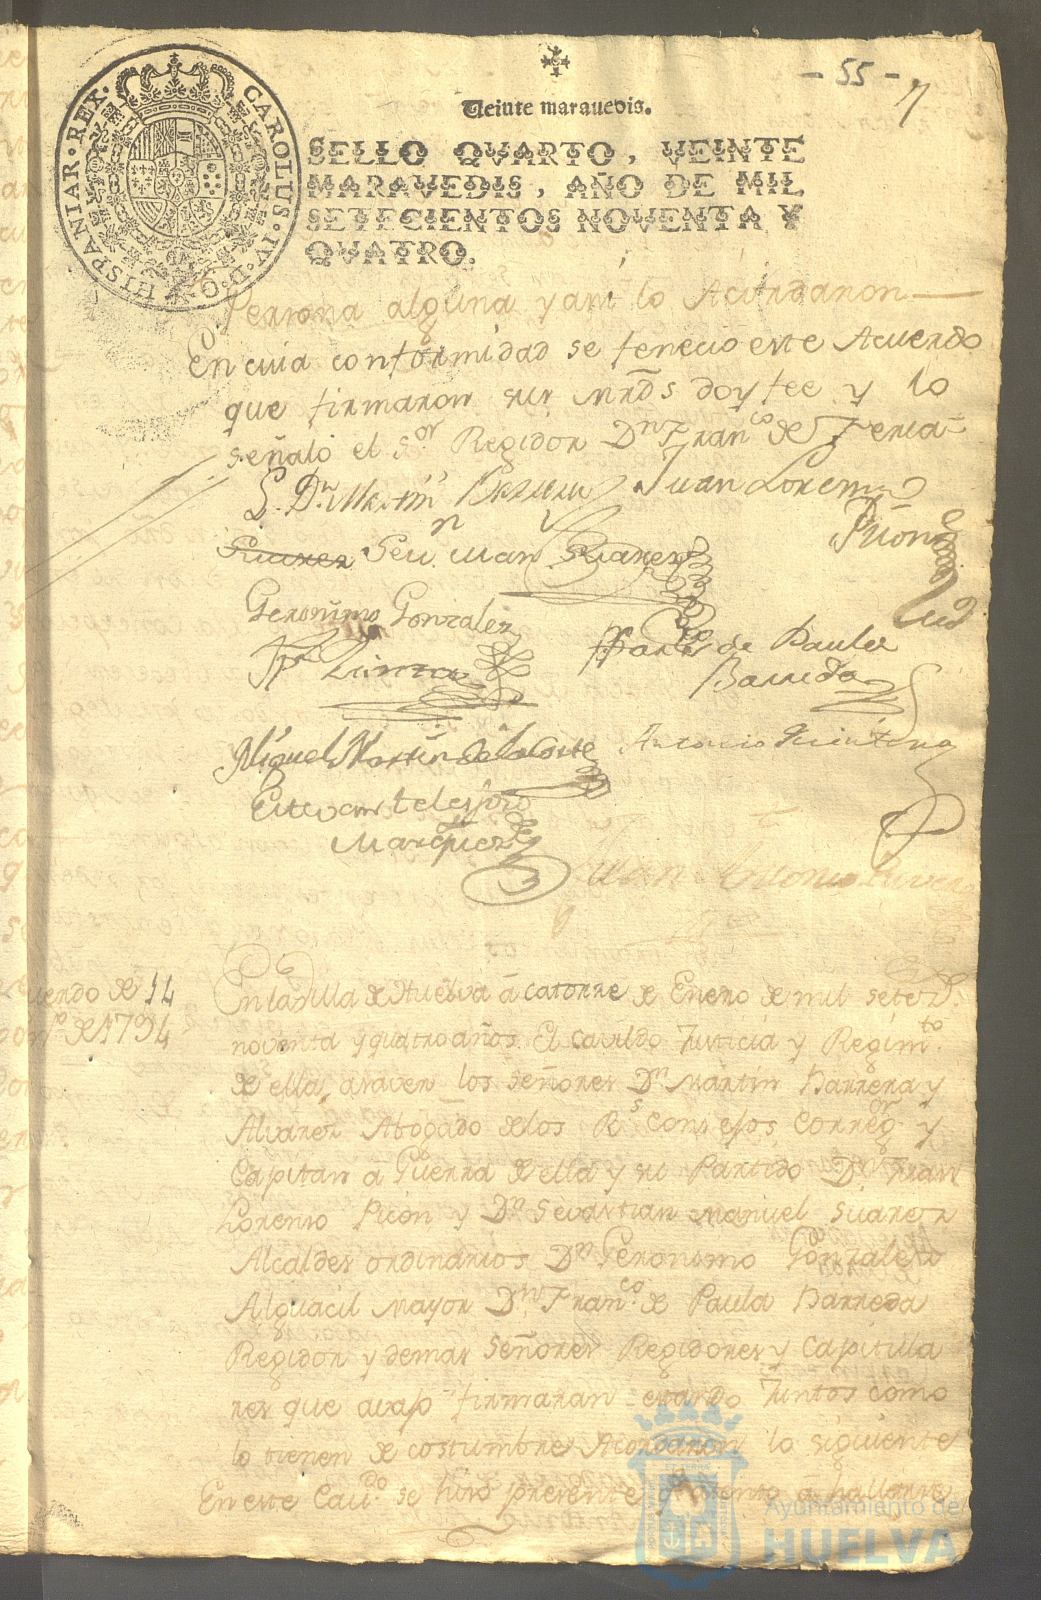 - 55 -
Veinte maravedis.
SELLO QVARTO, VEINTE
MARAVEDIS, AÑO DE MIL
SETECIENTOS NOVENTA Y
QVATRO.
CAROLUS·IV·D·G· HISPANIAR·REX·
Persona alguna y asi lo Acordaron
En cuia conformidad se fenecio este Acuerdo
que firmaron sus mrds doy fee y lo
señaló el Sor Regidor Dn Franco de Feria
L. Dn Martin Barrera Juan Lorenzo
Picon
Suarez Sevn Man Suarez
Geronimo Gonzalez
Franco de Paula
Barreda
Miguel Martin de la Corte Antonio Quintero
Estevan telesforo
Marquez
Juan Antonio Rivera
uerdo de 14
de 1794
En la villa de Huelva á catorze de Enero de mil setecs
noventa y quatro años. El Cavildo Justicia y Regimto
de ella, asaver los señores Dn Martin Barrera y
Alvarez Abogado de los Rs Consejos, Corregor y
Capitan a Guerra de ella y su Partido Dn Juan
Lorenso Picón y Dn Sevastian Manuel Suarez
Alcaldes ordinarios, Dn Geronimo Gonzalez
Alguacil mayor Dn Franco de Paula Barreda
Regidor y demas señores Regidores y Capitula
res que avajo firmaran estando Juntos como
lo tienen de costumbre Acordaron lo siguiente
En este Cavdo se hizo presente á hallarse
Ayuntamiento de
HUELVA